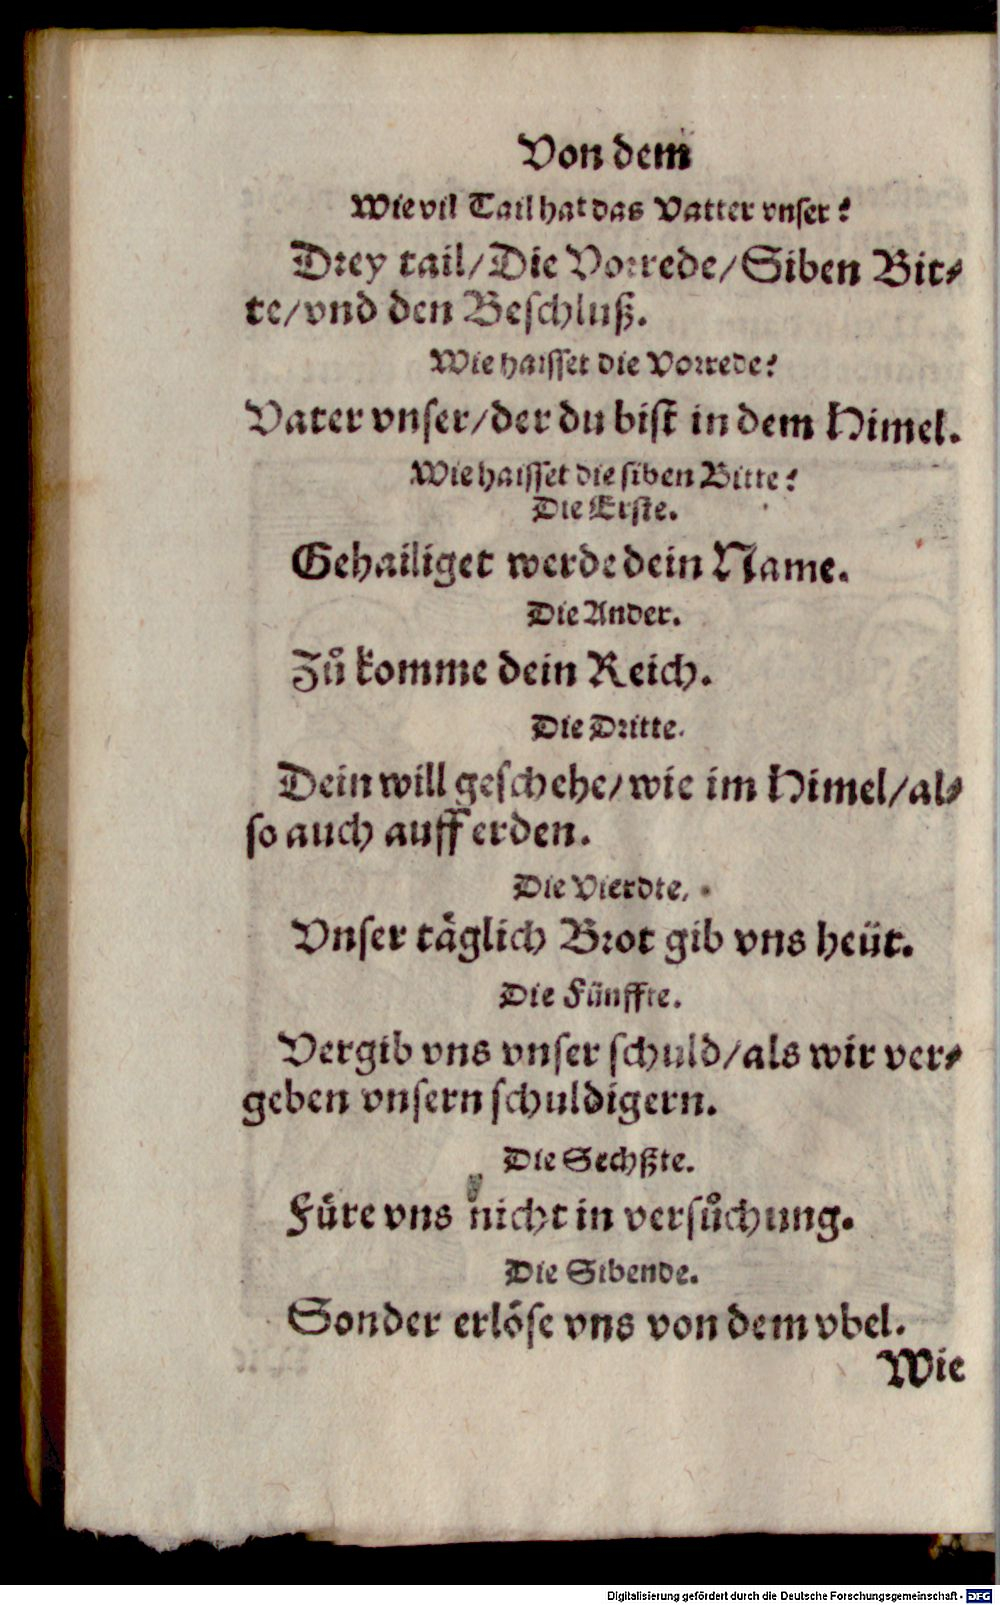 Von dem
Wie vil Tail hat das Vatter vnser?
Drey tail/Die Vorrede/Siben Bit⸗
te/vnd den Beschluß.
Wie haisset die Vorrede?
Vater vnser/der du bist in dem Himel.
Wie haisset die siben Bitte?
Die Erste.
Gehailiget werde dein Name.
Die Ander.
Zů komme dein Reich.
Die Dritte.
Dein will geschehe/wie im Himel/al⸗
so auch auff erden.
Die Vierdte.
Vnser täglich Brot gib vns heüt.
Die Fünffte.
Vergib vns vnser schuld/als wir ver⸗
geben vnsern schuldigern.
Die Sechßte.
Füre vns nicht in versůchung.
Die Sibende.
Sonder erlöse vns von dem vbel.
Wie
Digitalisierung gefördert durch die Deutsche Forschungsgemeinschaft - DFG